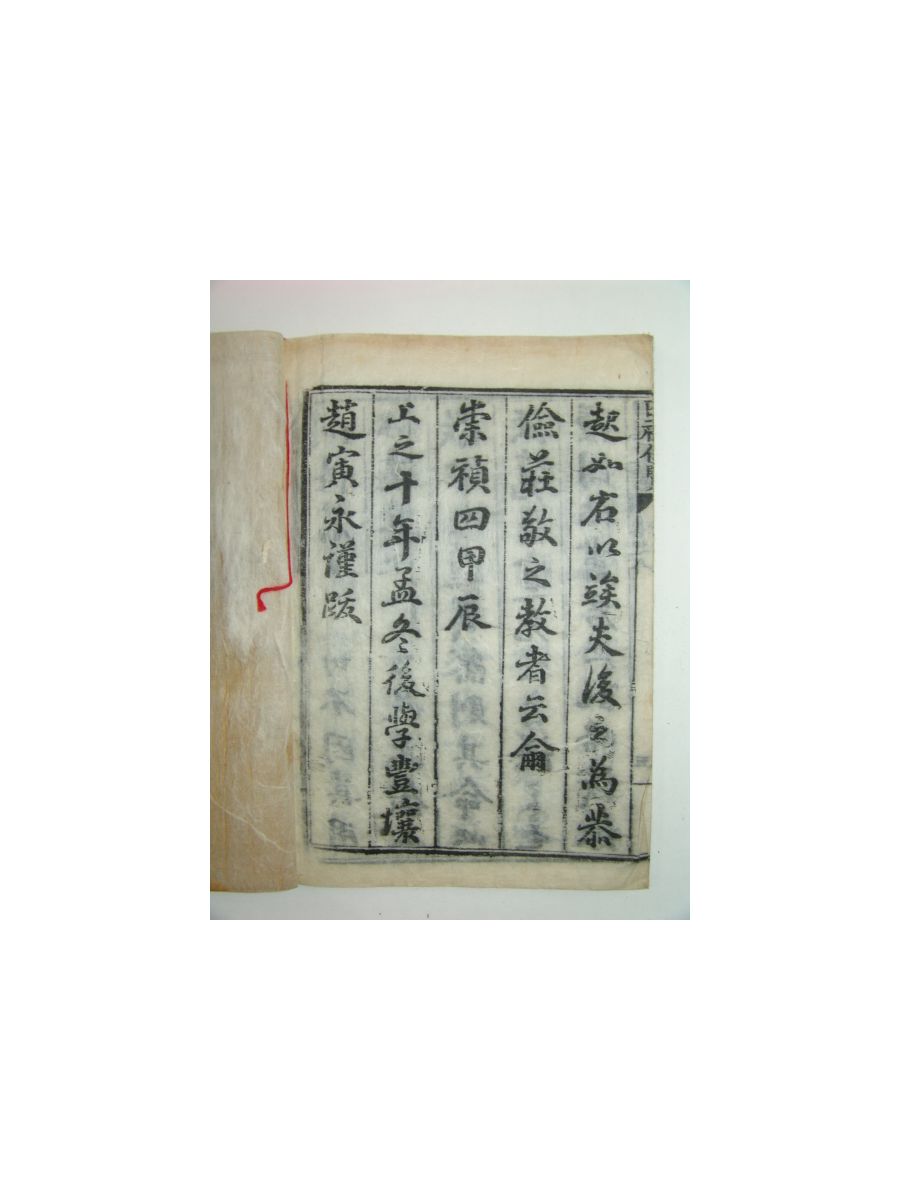 起如右以竢夫後之為恭
儉莊敬之教者云侖
崇禎四甲辰
上之十年孟冬後學豊壤
趙寅永謹跋